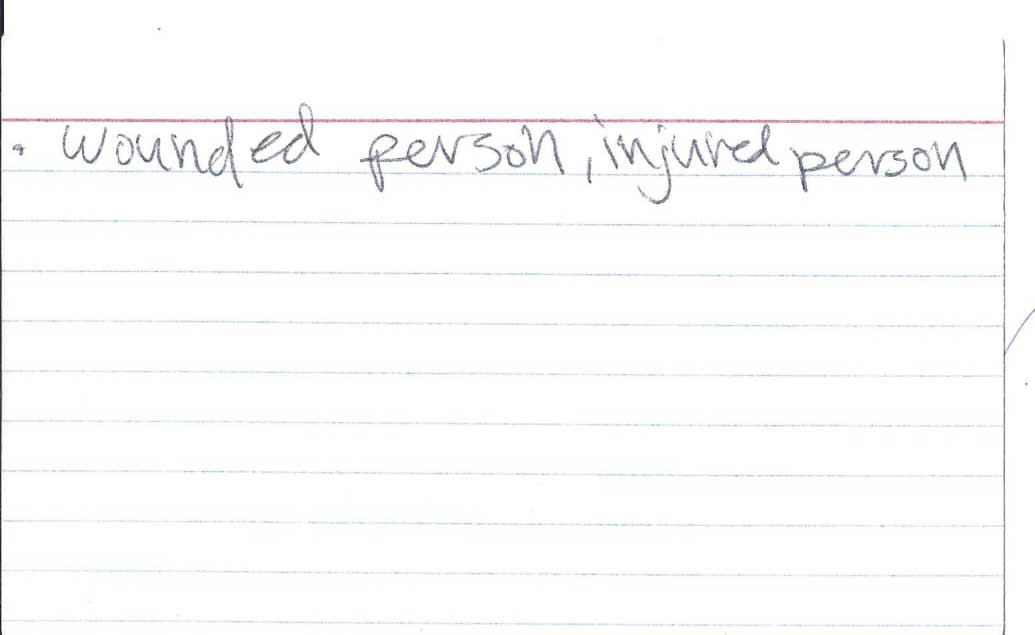 • wounded person, injured person